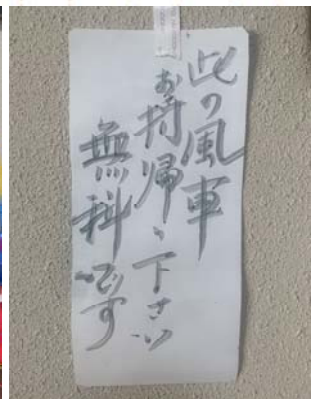 此の風車
お持帰り下さい
無料です